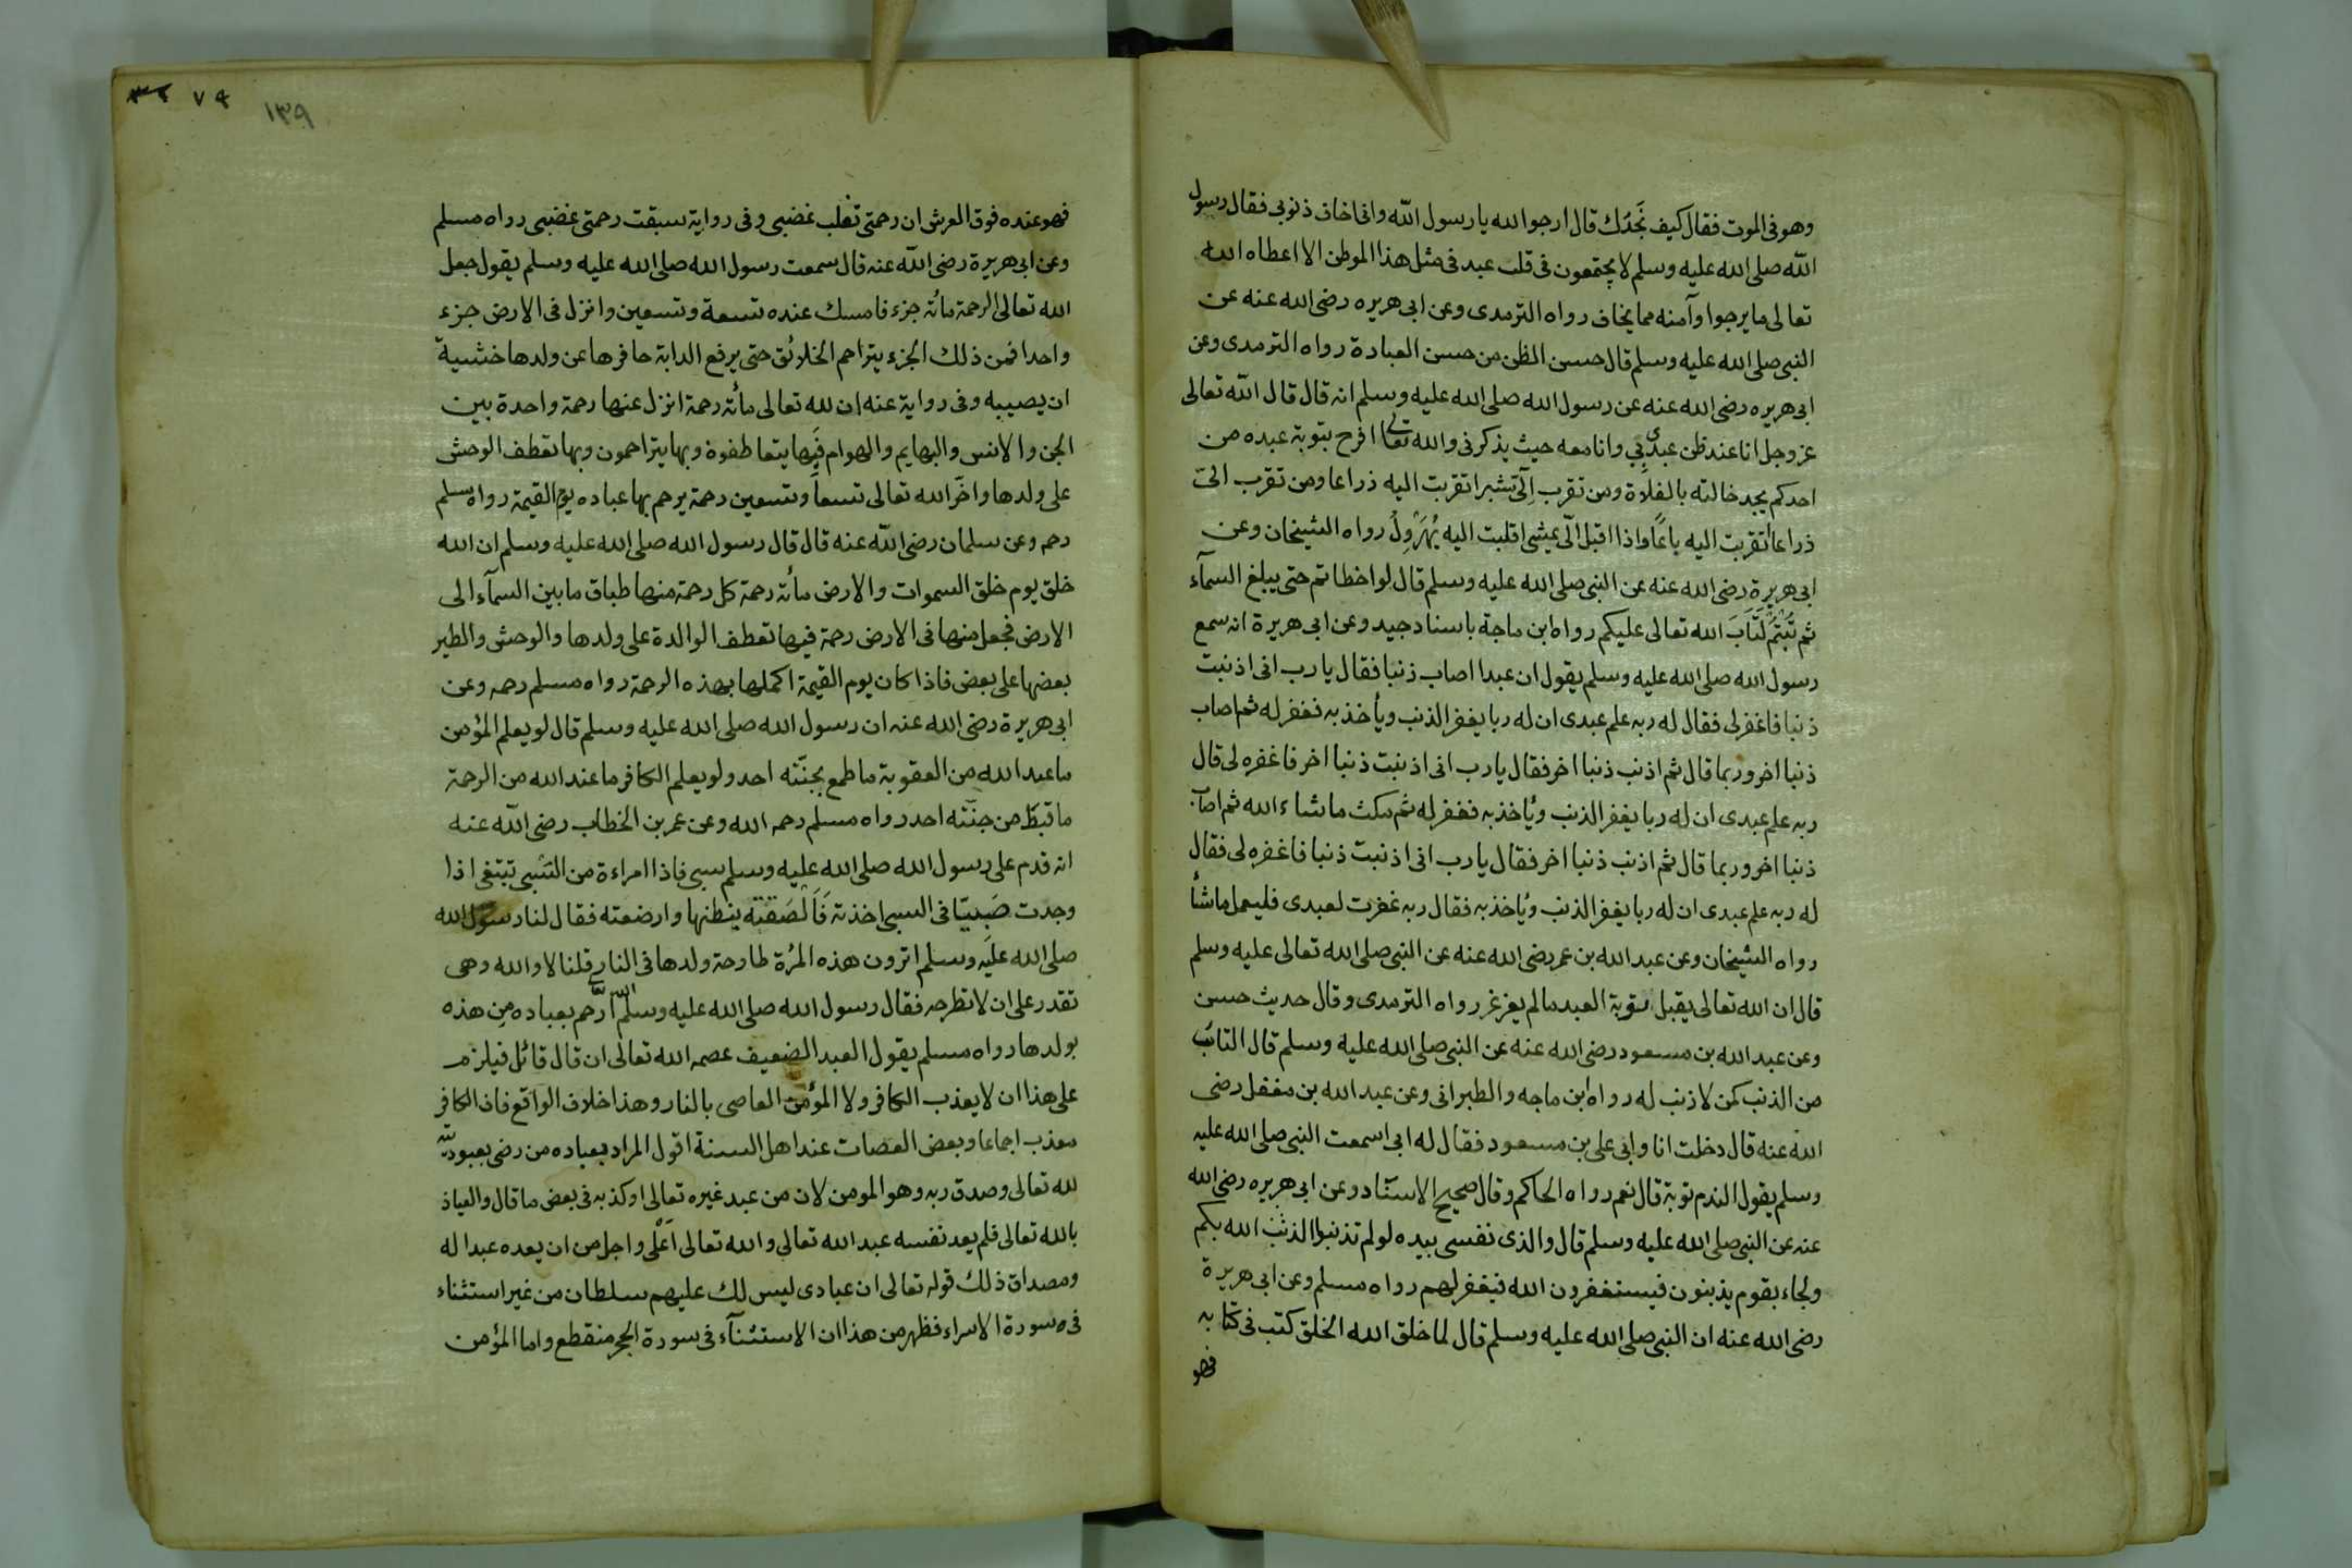 وهو فى الموت فقال كيف نَجَدُك قال ارجوا لله يا رسول الله وانى اخاف ذنوبى فقال رسول
الله صلى الله عليه وسلم لا يجتمعون فى قلب عبد فى مثل هذا الموطن الا اعطاه الله
تعالى ما يرجوا وآمنه مما يخاف رواه الترمدى وعن ابى هريره رضى الله عنه عن
النبى صلى الله عليه وسلم قال حسن الظن من حسن العبادة رواه الترمدى وعن
ابى هريره رضى الله عنه عن رسول الله صلى الله عليه وسلم انه قال قال الله تعالى
عز وجل انا عند ظن عبدى بي وانا معه حيث يذكرنى والله تعالى افرح بتوبة عبده من
احدكم يجد ضالته بالفلاة ومن تقرب اِلَىّ شبرا تقربت اليه ذراعا ومن تقرب الىّ
ذراعا تقربت اليه باعًا واذا اقبل الىّ يمشى اقبلت اليه يُهَرْوِلُ رواه الشيخان وعن
ابى هريرة رضى الله عنه عن النبى صلى الله عليه وسلم قال لو اخطاتم حتى يبلغ السمآء
ثم تُبْتُمْ لَتَابَ الله تعالى عليكم رواه ابن ماجة باسناد جيد وعن ابى هريرة انه سمع
رسول الله صلى الله عليه وسلم يقول ان عبدا اصاب ذنبا فقال يا رب انى اذنبت
ذنبا فاغفر لى فقال له ربه علم عبدى ان له ربا يغفر الذنب ويأخذ به فغفر له ثم اصاب
ذنبا اخر وربما قال ثم اذنب ذنبا اخر فقال يا رب انى اذنبت ذنبا اخر فاغفره لى قال
ربه علم عبدى ان له ربا يغفر الذنب ويأخذ به فغفر له ثم مكث ما شاء الله ثم اصاب
ذنبا اخر وربما قال ثم اذنب ذنبا اخر فقال يا رب انى اذنبت ذنبا فاغفره لى فقال
له ربه علم عبدى ان له ربا يغفر الذنب ويأخذ به فقال ربه غفرت لعبدى فليعمل ما شأ
رواه الشيخان وعن عبد الله بن عمر رضى الله عنه عن النبى صلى الله تعالى عليه وسلم
قال ان الله تعالى يقبل توبة العبد ما لم يغرغر رواه الترمدى وقال حديث حسن
وعن عبد الله بن مسعود رضى الله عنه عن النبى صلى الله عليه وسلم قال التائب
من الذنب كمن لا ذنب له رواه ابن ماجه والطبرانى وعن عبد الله بن مغفل رضى
الله عنه قال دخلت انا وابى على بن مسعود فقال له ابى اسمعت النبى صلى الله عليه
وسلم يقول الندم توبة قال نعم رواه الحاكم وقال صحيح الاسناد وعن ابى هريره رضى الله
عنه عن النبى صلى الله عليه وسلم قال والذى نفسى بيده لو لم تذنبوا لذهب الله بكم
ولجاء بقوم يذنبون فيستغفرون الله فيغفر لهم رواه مسلم وعن ابى هريرة
رضى الله عنه ان النبى صلى الله عليه وسلم قال لما خلق الله الخلق كتب فى كتابه
فهو
٧٩
١٣٩
فهو عنده فوق العرش ان رحمتى تغلب غضبى وفى رواية سبقت رحمتى غضبى رواه مسلم
وعن ابى هريرة رضى الله عنه قال سمعت رسول الله صلى الله عليه وسلم يقول جعل
الله تعالى الرحمة مأتة جزء فامسك عنده تسعة وتسعين وانزل فى الارض جزء
واحدا فمن ذلك الجزء يتراحم الخلائق حتى يرفع الدابة حافرها عن ولدها خشية
ان يصيبه وفى رواية عنه ان لله تعالى مأتة رحمة انزل عنها رحمة واحدة بين
الجن والانس والبهايم والهوام فَبِها يتعاطفوة وبها يتراحمون وبها تعطف الوحش
على ولدها واخّر الله تعالى تسعاً وتسعين رحمة يرحم بها عباده يوم القيمة رواه مسلم
رحم وعن سلمان رضى الله عنه قال قال رسول الله صلى الله عليه وسلم ان الله
خلق يوم خلق السموات والارض مأتة رحمة كل رحمة منها طباق ما بين السمآء الى
الارض فجعل منها فى الارض رحمة فيها تعطف الوالدة على ولدها والوحش والطير
بعضها على بعض فاذا كان يوم القيمة اكملها بهذه الرحمة رواه مسلم رحمه وعن
ابى هريرة رضى الله عنه ان رسول الله صلى الله عليه وسلم قال لو يعلم المؤمن
ما عند الله من العقوبة ما طمع بجنّته احد ولو يعلم الكافر ما عند الله من الرحمة
ما قنط من جنّته احد رواه مسلم رحمه الله وعن عمر بن الخطاب رضى الله عنه
انه قدم على رسول الله صلى الله عليه وسلم سبى فاذا امراءة من السَّبى تبتغى اذا
وجدت صَبيّا فى السبى اخذته فَاَلْصَقَتْه ببطنها وارضعته فقال لنا رسول الله
صلى الله عليه وسلم اترون هذه المرأة طارحة ولدها فى النار قلنا لا والله وهى
تقدر على ان لا تطرحه فقال رسول الله صلى الله عليه وسلم لله ارحم بعباده من هذه
بولدها رواه مسلم يقول العبد الضعيف عصمه الله تعالى ان قال قائل فيلزم
على هذا ان لا يعذب الكافر ولا المؤمن العاصى بالنار وهذا خلاف الواقع فان الكافر
معذب اجماعا وبعض العصات عند اهل السنة اقول المراد بعباده من رضى بعبوديّة
لله تعالى وصدق ربه وهو المومن لان من عبد غيره تعالى او كذبه فى بعض ما قال والعياذ
بالله تعالى فلم يعد نفسه عبد الله تعالى والله تعالى اَعْلى واجل من ان يعده عبدا له
ومصداق ذلك قوله تعالى ان عبادى ليس لك عليهم سلطان من غير استثناء
فى سورة الاسراء فظهر من هذا ان الاستثنآء فى سورة الحجر منقطع واما المؤمن